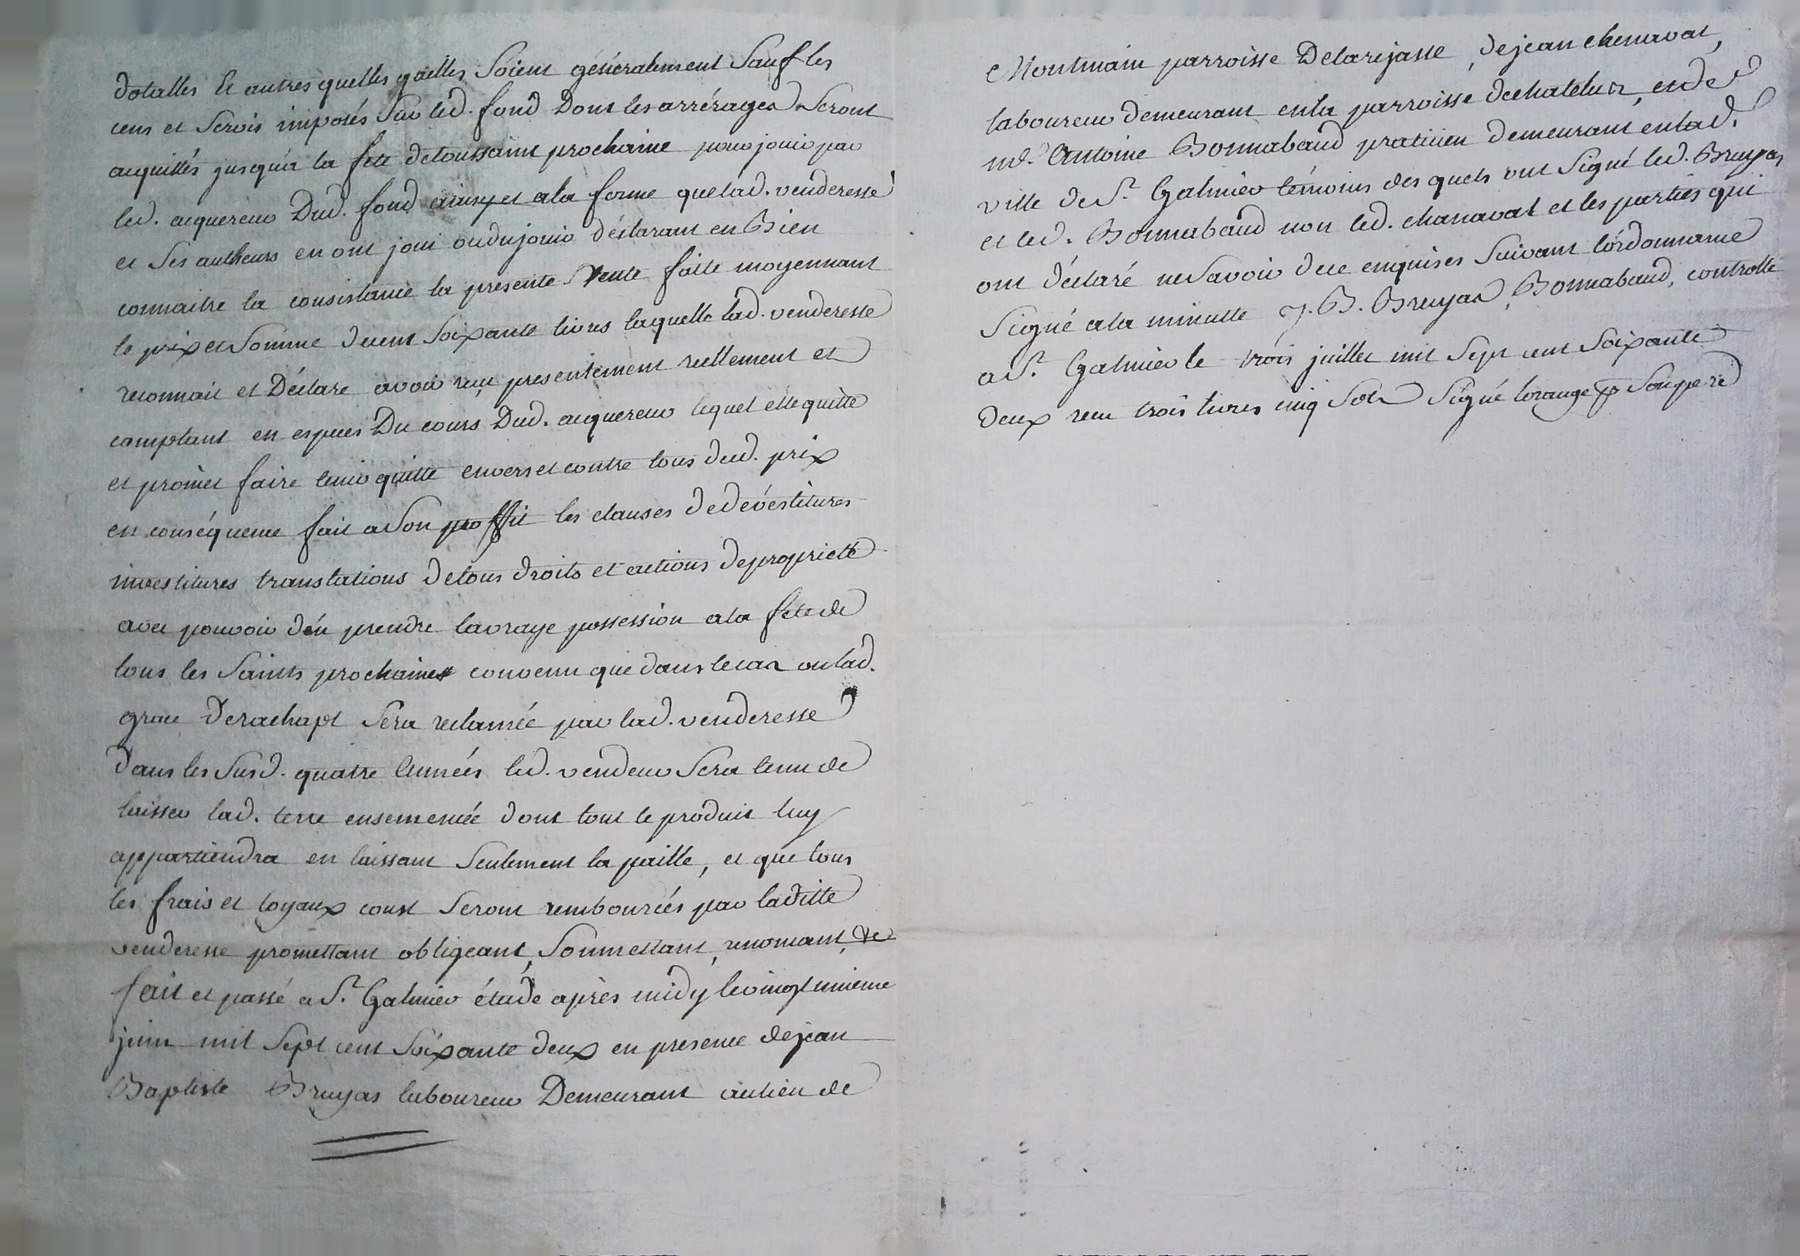 dotalles et autres quelles quelles soient généralement sauf les
cens et servis imposés sur led. fond dont les arrérages seront
acquittés jusqu'a la fete de toussaint prochaine pour jouir par
led. acquereur dud. fond ainsy et a la forme que lad. venderesse
et ses autheurs en ont joui ou du jouir déclarant en Bien
connaitre la consistance la presente vente faite moyennant
le prix et somme de cent soixante livres laquelle lad. venderesse
reconnait et déclare avoir reçu presentement reellement et
comptant en especes du cours dud. acquereur lequel elle quitte
et promet faire tenir quitte envers et contre tous dud. prix
en conséquence fait a son proffit les clauses de dévestitures
investitures translations de tous droits et actions de proprieté
avec pouvoir d'en prendre la vraye possession a la fete de
tous les saints prochaine convenu que dans le cas ou lad.
grace de rachapt sera reclamée par lad. venderesse
dans les susd. quatre années led. vendeur sera tenu de
laisser lad. terre ensemencée dont tout le produit luy
appartiendra en laissant seulement la paille, et que tous
les frais et loyaux coust seront remboursés par laditte
venderesse promettant obligeant, soumettant, renonçant, &c
fait et passé a St. Galmier étude après midy le vingt unieme
juin mil sept cent soixante deux en presence de jean
Baptiste Bruyas laboureur demeurant au lieu de
Montmain parroisse de larajasse, de jean chenavat,
laboureur demeurant en la parroisse de chatelus, et de
md. Antoine Bonnabaud praticien demeurant en lad.
ville de St. Galmier témoins des quels ont signé led. Bruyas
et led. Bonnabaud non led. chanavat et les parties qui
ont déclaré ne savoir de ce enquises suivant l'ordonnance
signé a la minutte J. B. Bruyas, Bonnabaud, controllé
a St. Galmier le trois juillet mil sept cent soixante
deux reçu trois livres cinq sols signé lorange